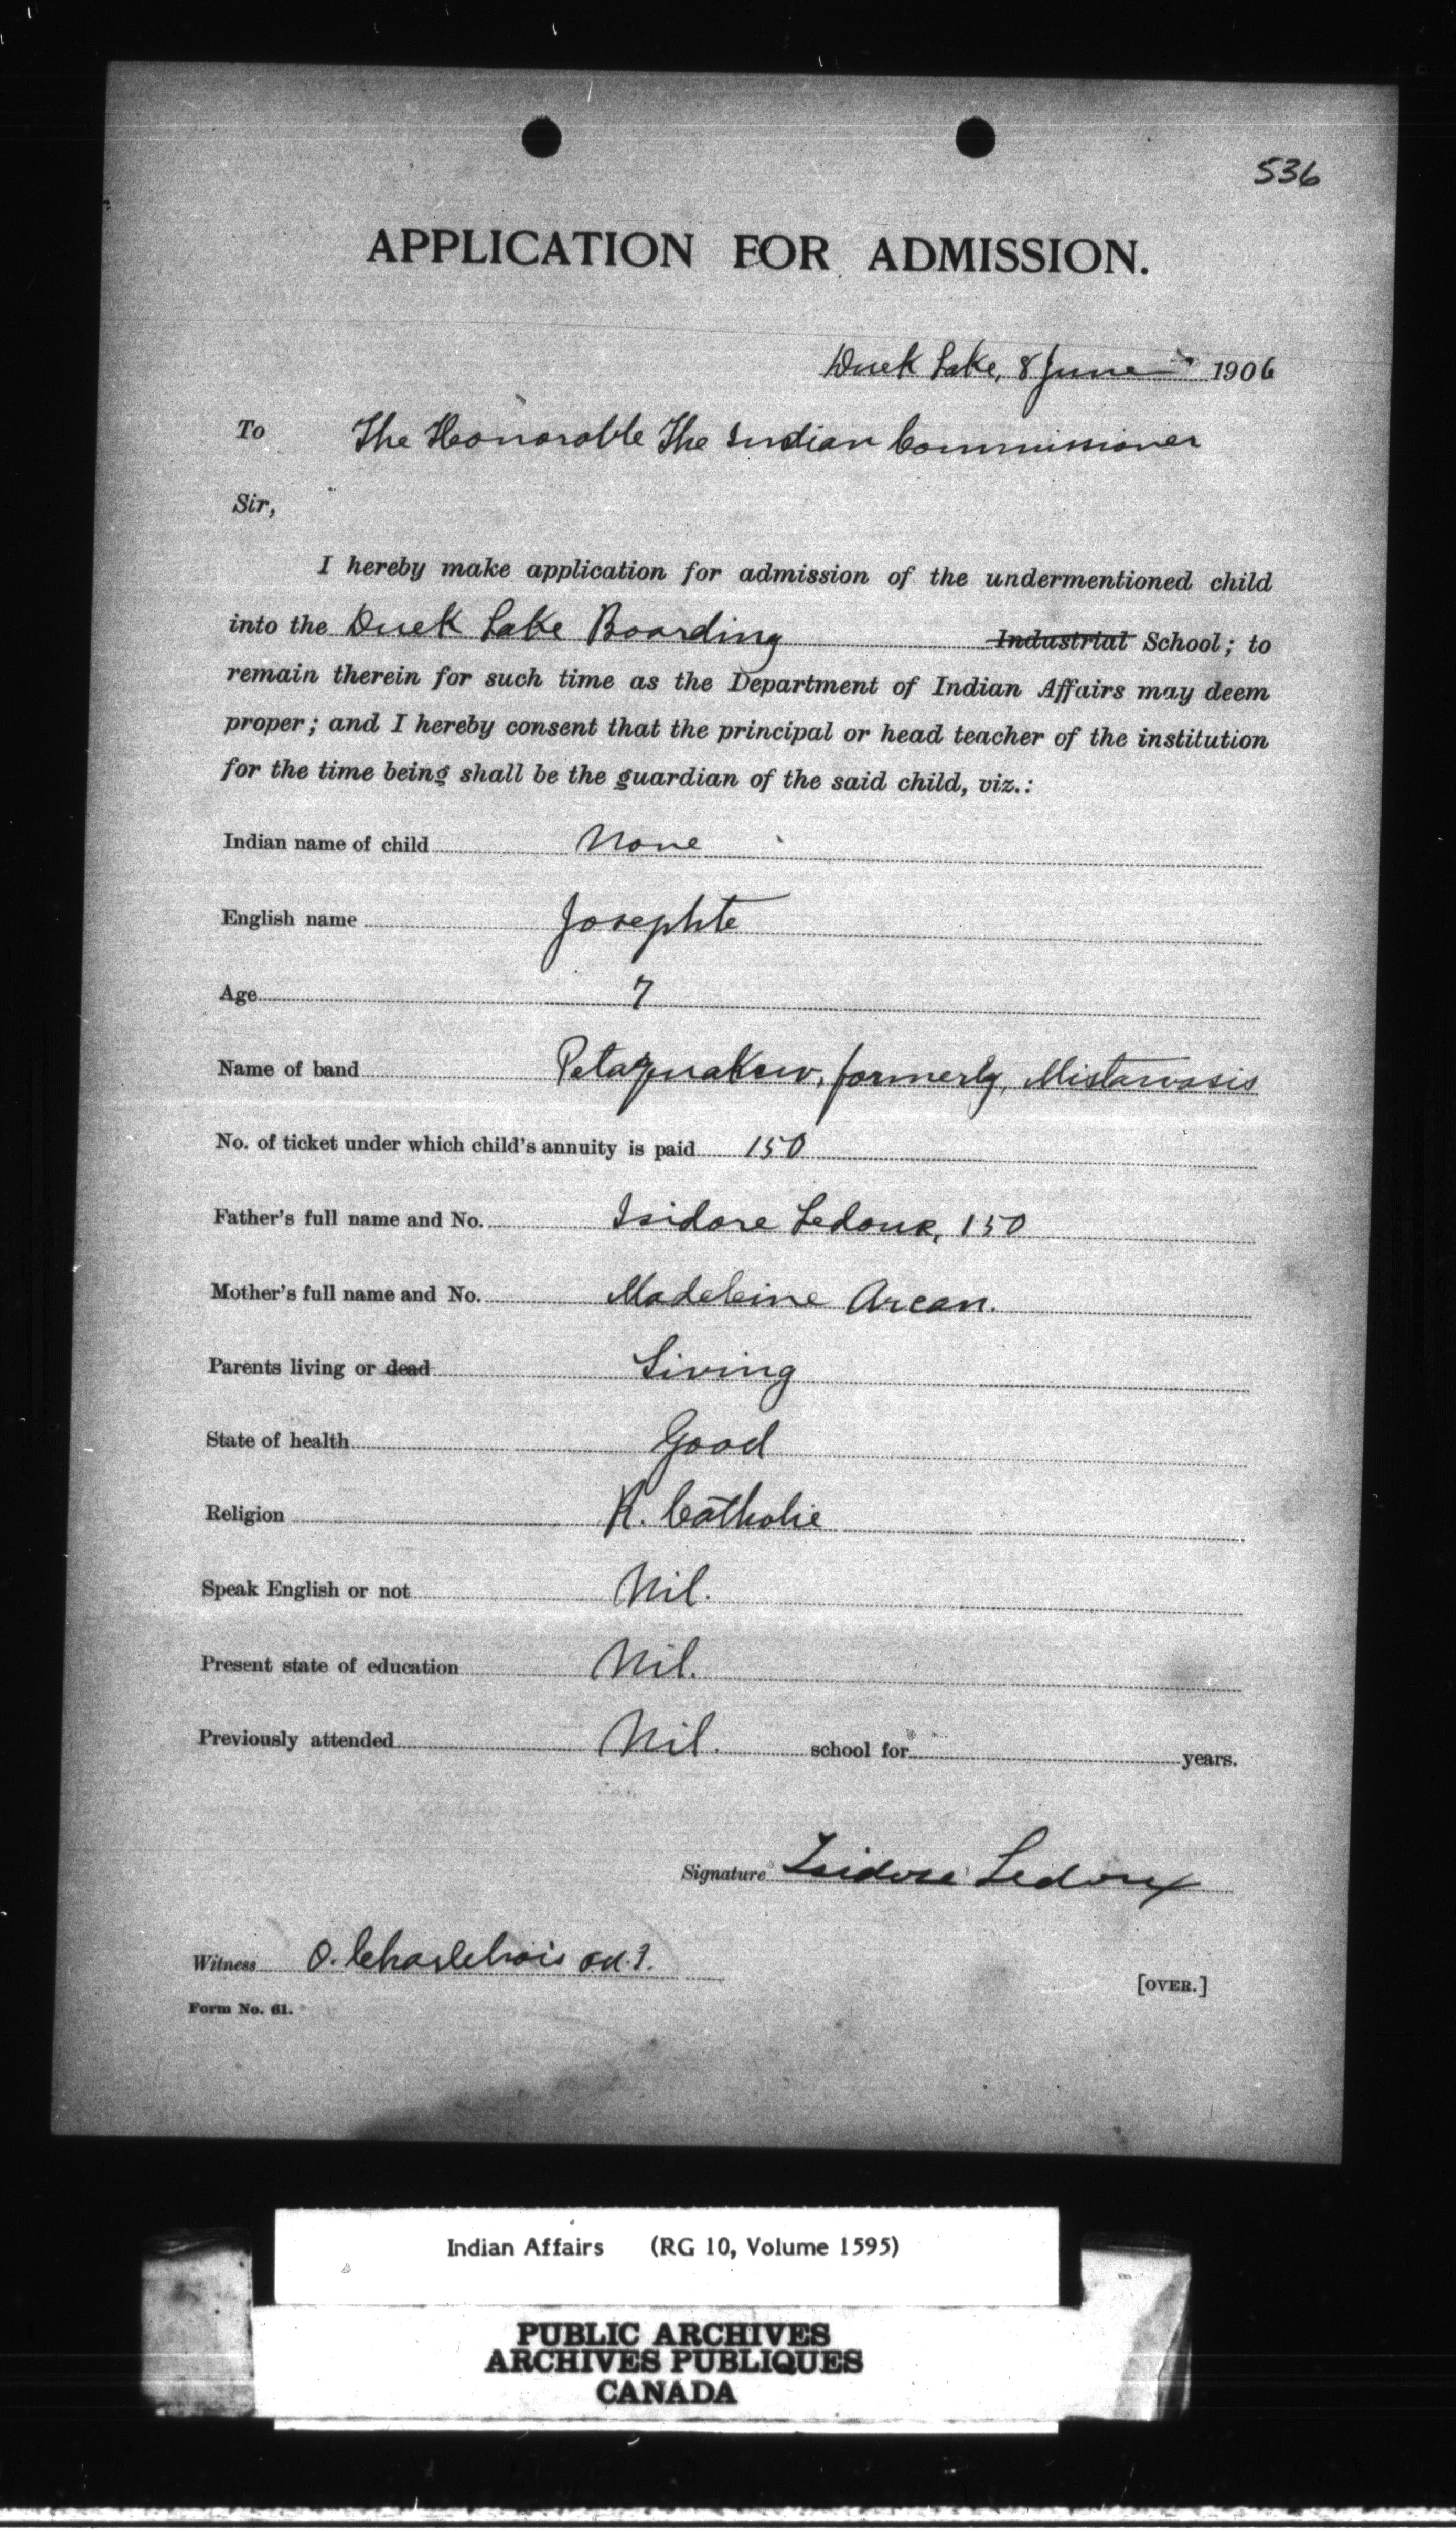 536
APPLICATION FOR ADMISSION.
Duck Lake, 8 June 1906
To The Honorable The Indian Commissioner
Sir,
I hereby make application for admission of the undermentioned child
into the Duck Lake Boarding Industrial School; to
remain therein for such time as the Department of Indian Affairs may deem
proper; and I hereby consent that the principal or head teacher of the institution
for the time being shall be the guardian of the said child, viz.:
Indian name of child None
English name Josephte
Age 7
Name of band Petaquakew, formerly, Mistawasis
No. of ticket under which child's annuity is paid 150
Father's full name and No. Isidore Ledoux, 150
Mother's full name and No. Madeleine Arcan.
Parents living or dead Living
State of health Good
Religion R. Catholic
Speak English or not Nil.
Present state of education Nil.
Previously attended Nil. school for years.
Signature Isidore Ledoux
Witness O. Charlebois o.m.i.
[OVER.]
Form No. 61.
Indian Affairs (RG 10, Volume 1595)
PUBLIC ARCHIVES
ARCHIVES PUBLIQUES
CANADA